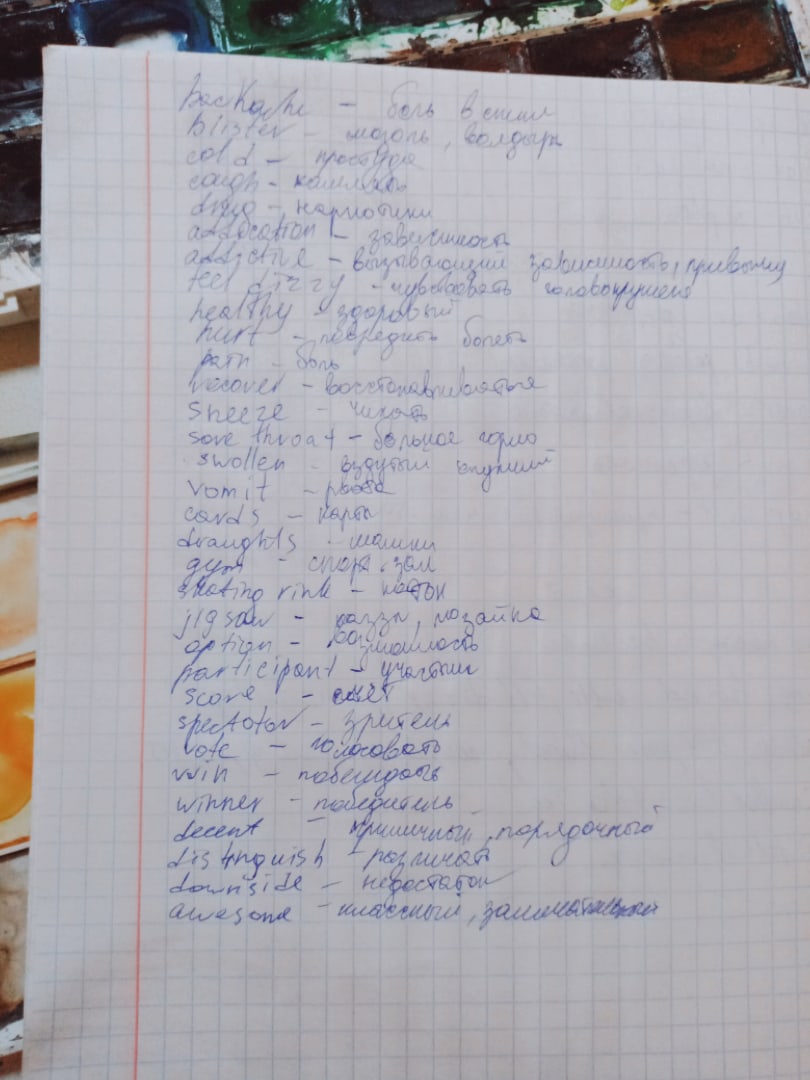 backache - боль в спине
blister - мозоль, волдырь
cold - простуда
cough - кашлять
drug - наркотики
addication - зависимость
addictive - вызывающий зависимость, привычку
feel dizzy - чувствовать головокружение
healthy - здоровый
hurt - повредить болеть
pain - боль
recover - восстанавливаться
sneeze - чихать
sore throat - больное горло
swollen - вздутый опухший
vomit - рвота
cards - карты
draughts - шашки
gym - спорт. зал
skating rink - каток
jigsaw - паззл, мозайка
option - возможность
participant - участник
score - счёт
spectator - зритель
vote - голосовать
win - побеждать
winner - победитель
decent - приличный, порядочный
distinguish - различать
downside - недостаток
awesome - классный,